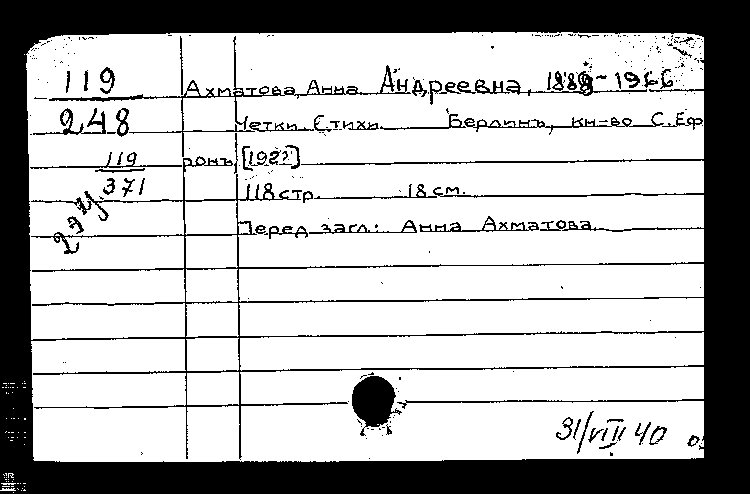 119 Ахматова, Анна Андреевна, 1889-1966
248 Четки. Стихи. Берлинъ, кн-во С. Еф
119 ронъ, [192?]
371 118 стр. 18 см.
Перед загл: Анна Ахматова.
31/VIII 40